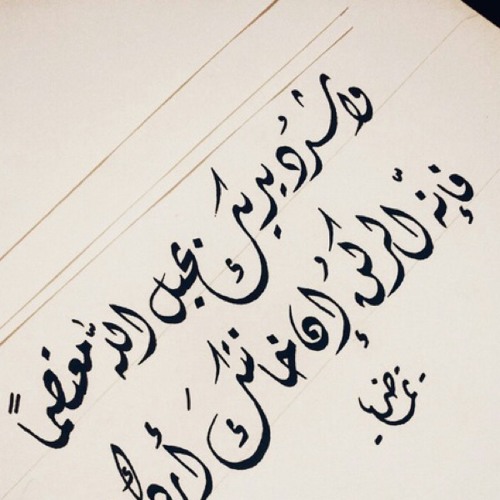 واشدُد يديك بحبل الله معتصماً
فإنّه الركن إن خانتك أركان